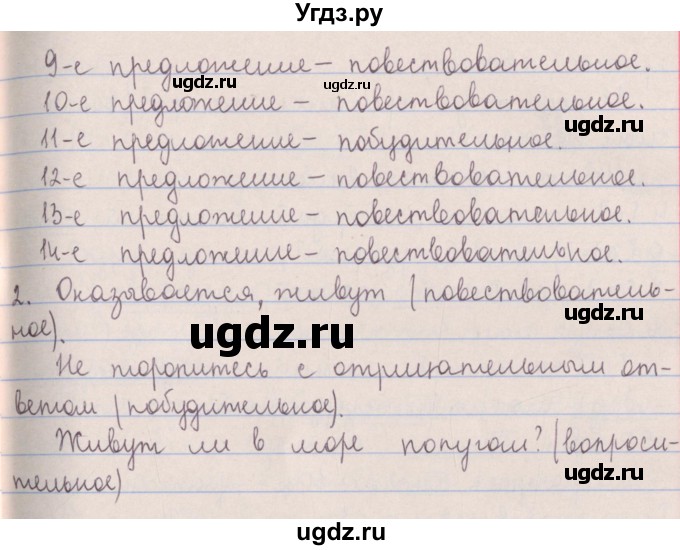 Угдз.ру
9-е предложение – повествовательное.
ugdz.ru ugdz.ru
10-е предложение – повествовательное.
ugdz.ru
11-е предложение – побудительное.
12-е предложение – повествовательное.
ugdz.ru ugdz.ru
13-е предложение – повествовательное.
ugdz.ru
14-е предложение – повествовательное.
2. Оказывается, живут (повествователь-
ное).
ugdz.ru
ugdz.ru
Не торопитесь с отрицательным от-
ветом (побудительное).
ugdz.ru
Живут ли в море попугаи? (вопроси-
тельное)
ugdz.ru
ugdz.ru
ugdz.ru